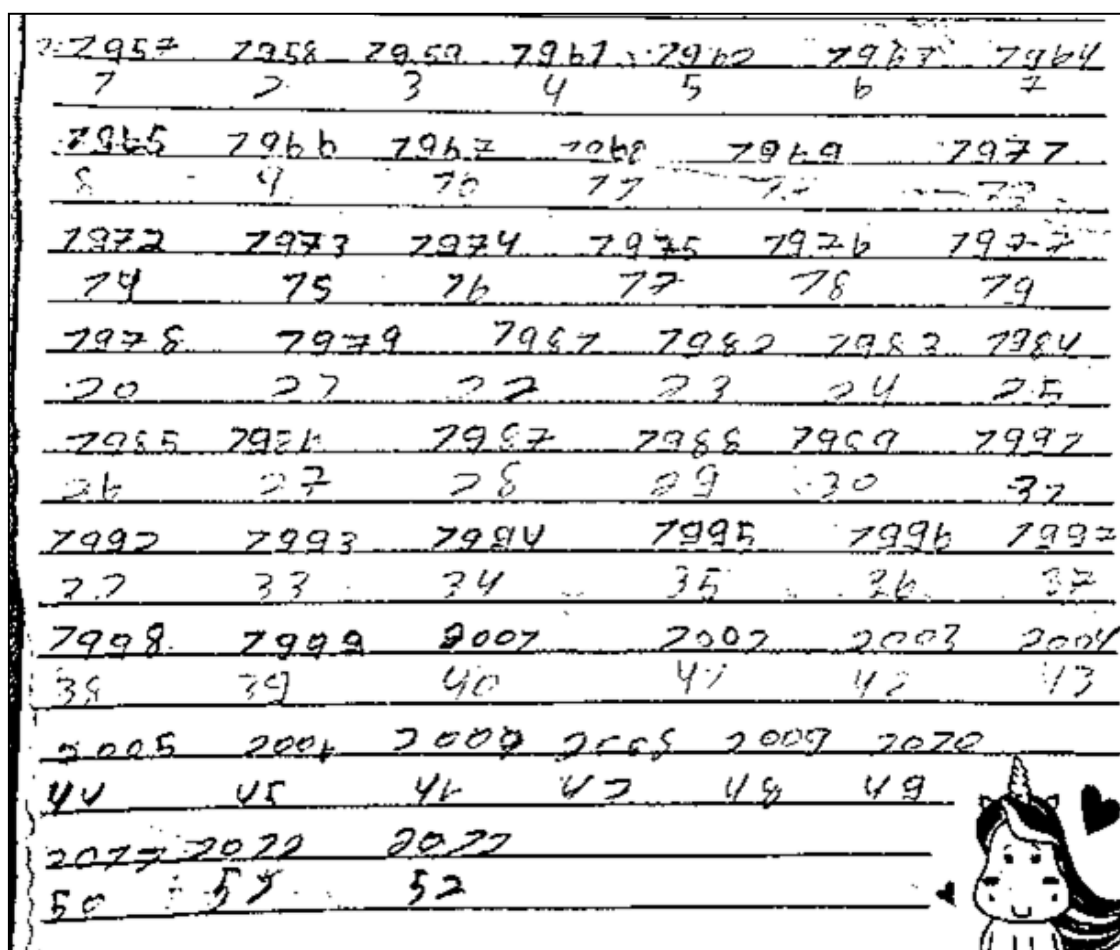 1957 1958 1959 1961 1962 1963 1964
1 2 3 4 5 6 7
1965 1966 1967 1968 1969 1971
8 9 10 11 12 13
1972 1973 1974 1975 1976 1977
14 15 16 17 18 19
1978 1979 1981 1982 1983 1984
20 21 22 23 24 25
1985 1986 1987 1988 1989 1991
26 27 28 29 30 31
1992 1993 1994 1995 1996 1997
32 33 34 35 36 37
1998 1999 2001 2002 2003 2004
38 39 40 41 42 43
2005 2006 2008 2009 2010
44 45 46 47 48 49
2011 2012
50 51 52